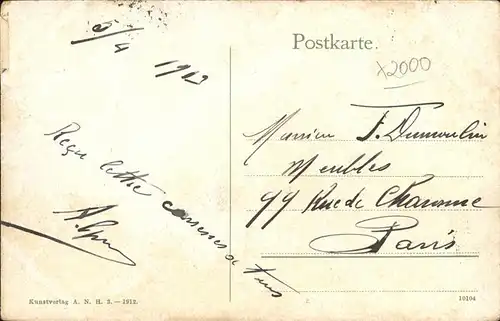 5/4 1912
Reçu lettre caresses de tous
Postkarte.
x2000
Monsieur F. Dumoulin
Meubles
99 Rue de Charonne
Paris
Kunstverlag A. N. H. 3. — 1912.
10104